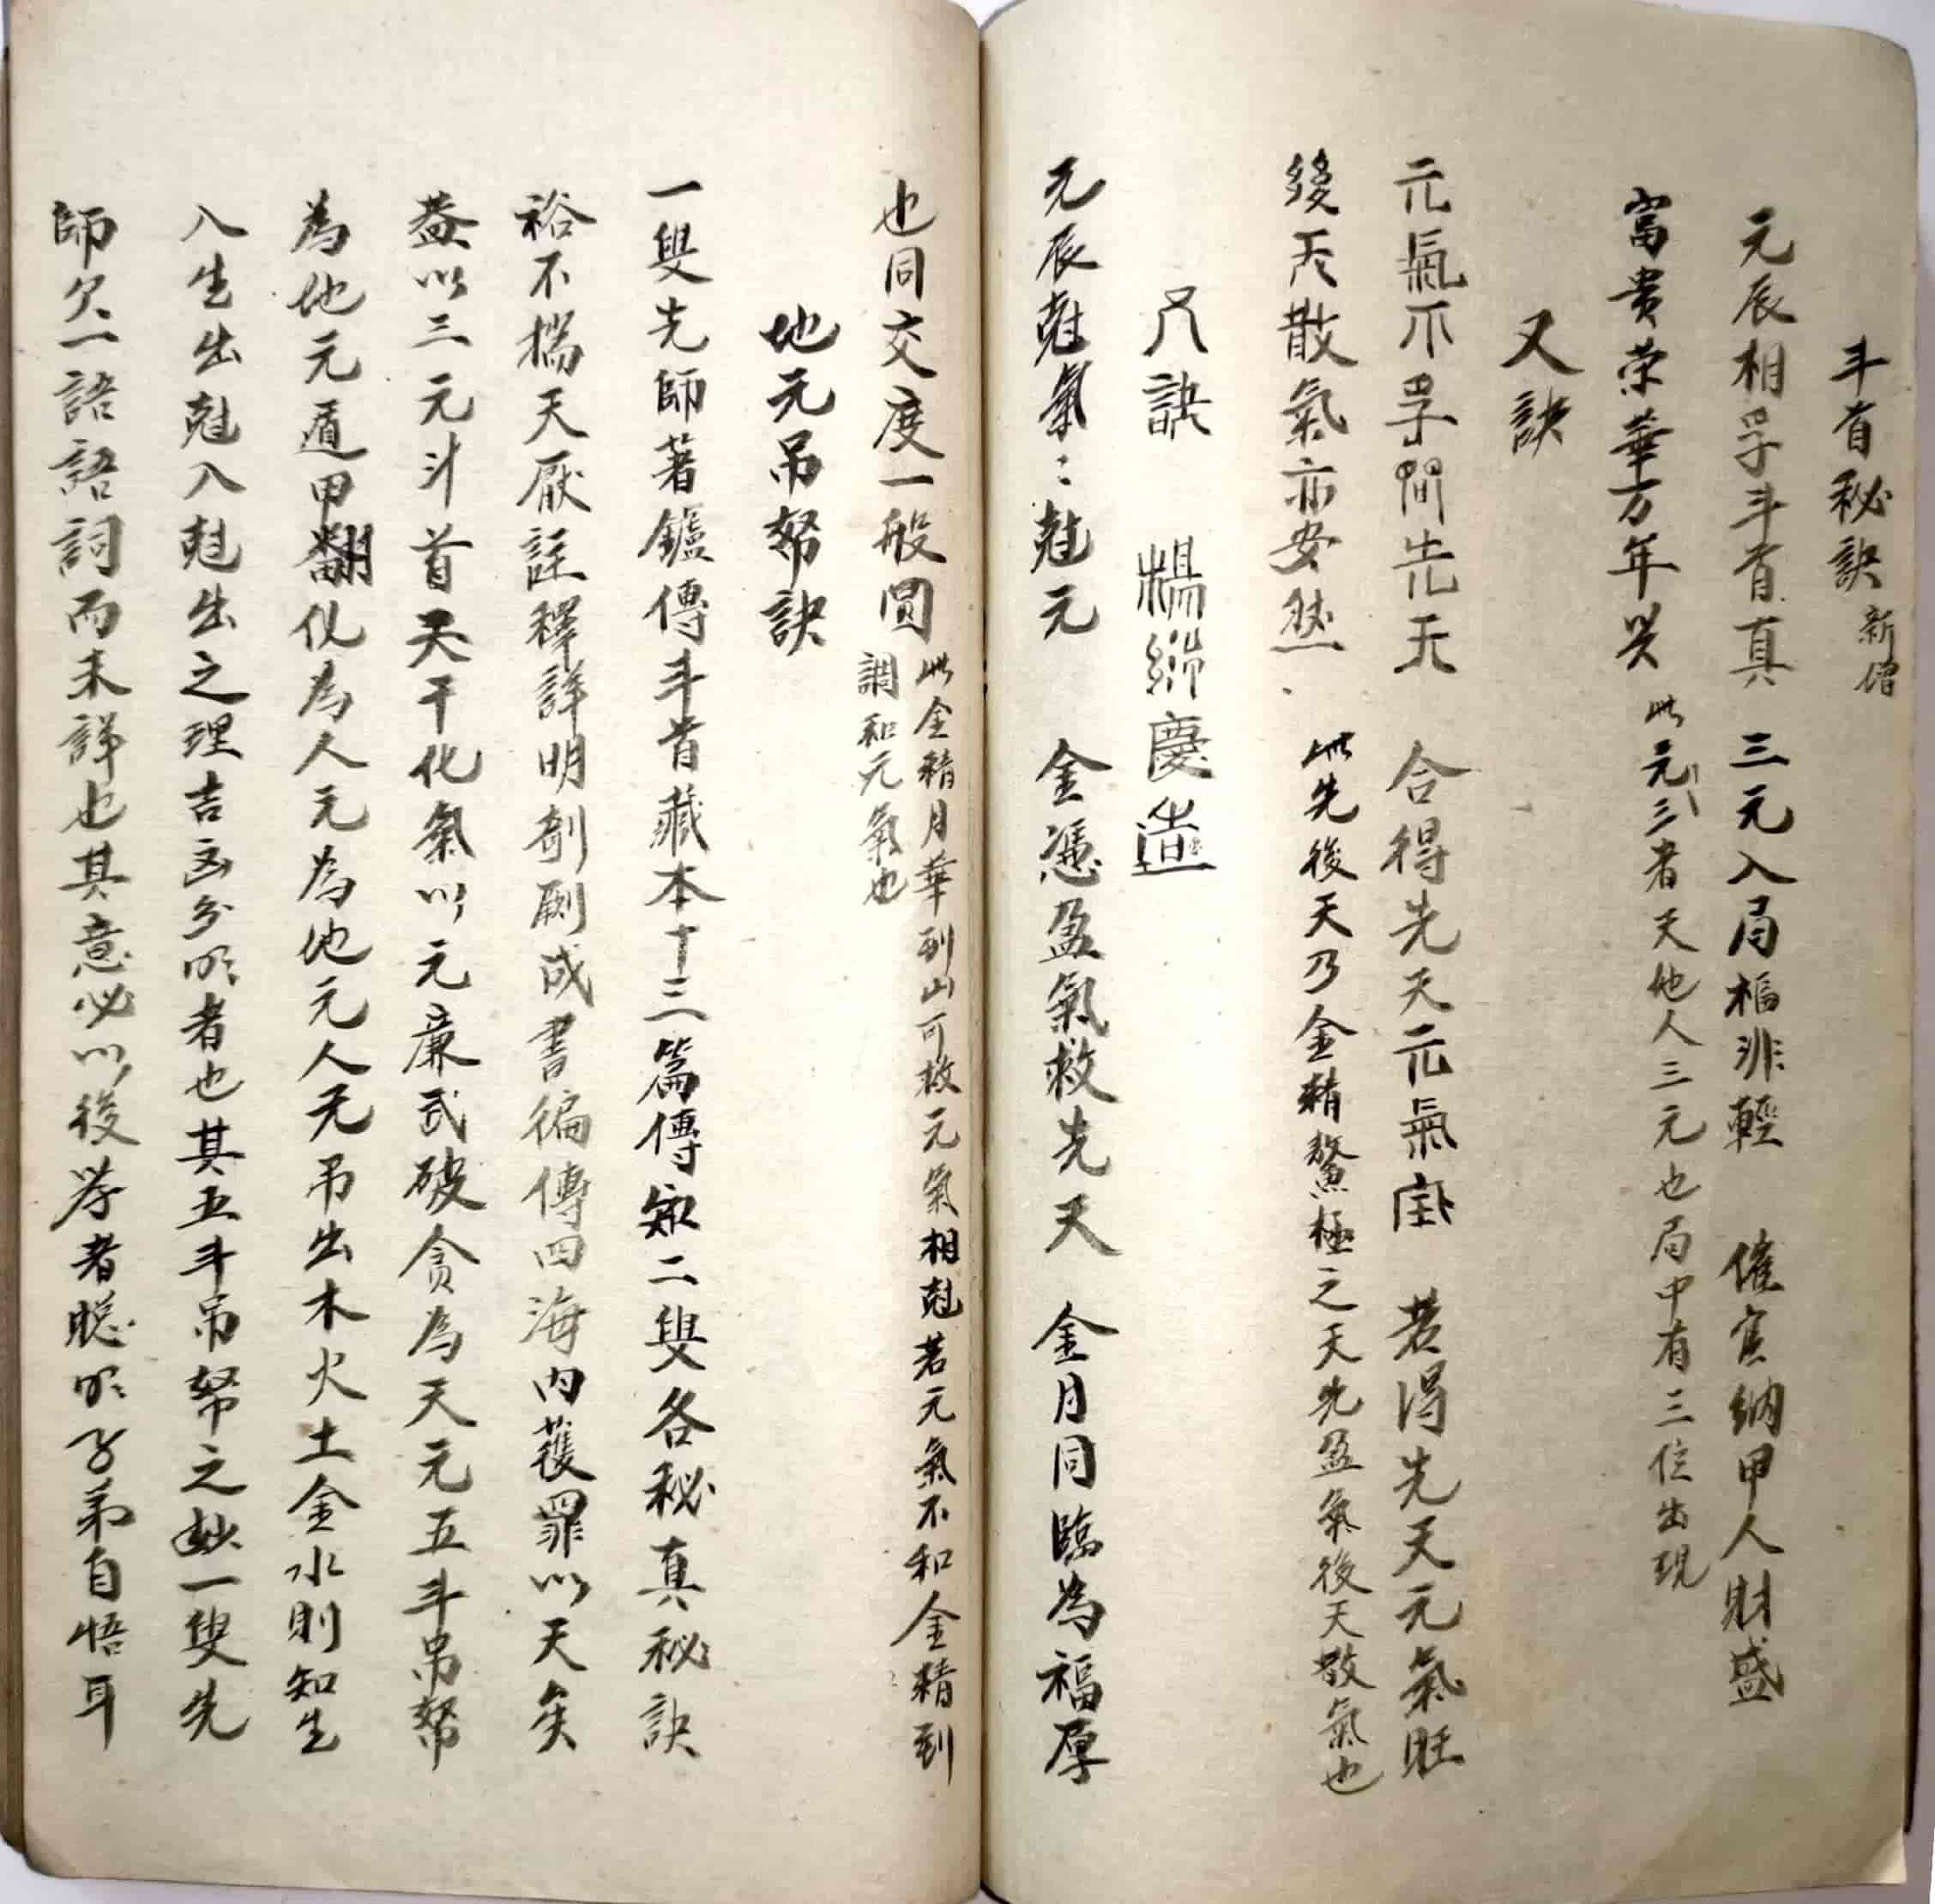 斗首秘訣 新增
元辰相孚斗首真 三元入局福非輕 催官納甲人財盛
富貴榮華万年興 此元三者天地人三元也局中有三位出現
又訣
元氣不孚問先天 合得先天元氣 若得先天元氣旺
後天散氣亦安然 此先後天乃金精鰲極之天先盈氣後天散氣也
又訣 楊 慶造
元辰尅氣〻尅元 金憑盈氣救先天 金月同臨為福厚
也同交度一般圓 此金精月華到山可救元氣相尅若元氣不和金精到
調和元氣也
地元吊帑訣
一叟先師著鑪傳斗首藏本十三篇傳知二叟各秘真秘訣
裕不揣天厭註釋詳明剞劂成書徧傳四海内獲罪以天矣
葢以三元斗首天干化氣以元廉武破貪為天元五斗吊帑
為地元遁甲翻化為人元為地元人元吊出木火土金水則知生
入生出尅入尅出之理吉凶分明者也其五斗吊帑之妙一叟先
師欠一語語詞而未詳也其意必以後學者聰明子弟自悟耳